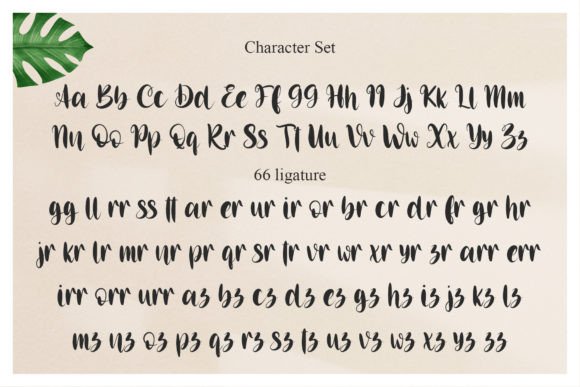 Character Set
Aa Bb Cc Dd Ee Ff Gg Hh Ii Jj Kk Ll Mm
Nn Oo Pp Qq Rr Ss Tt Uu Vv Ww Xx Yy Zz
66 ligature
gg ll rr ss tt ar er ur ir or br cr dr fr gr hr
jr kr lr mr nr pr qr sr tr vr wr xr yr zr arr err
irr orr urr az bz cz dz ez gz hz iz jz kz lz
mz nz oz pz qz rz sz tz uz vz wz xz yz zz